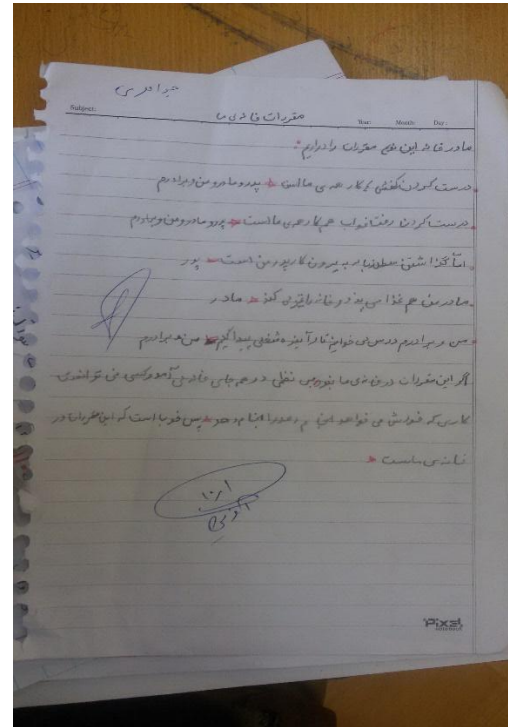 Subject:
مقررات خانه‌ی ما
Year: Month: Day:
ما در خانه این همه مقررات را داریم:
درست کردن کفش‌ها کار همه‌ی ما است پدر و مادر و من و برادرم
درست کردن رخت خواب هم کار همه‌ی ما است پدر و مادر و من و برادرم
امّا گذاشتن سطل بیرون کار پدر من است پدر
مادر من هم غذا می‌پزد و خانه را تمیز می‌کند مادر
من و برادرم درس می‌خوانیم تا در آینده شغلی پیدا کنیم من و برادرم
اگر این مقررات در خانه‌ی ما نبود بی نظمی در همه جای خانه می‌آمد و کسی نمی‌توانست
کاری که خودش می‌خواهد انجام دهد پس خوب است که این مقررات در
خانه‌ی ما است
Pixel